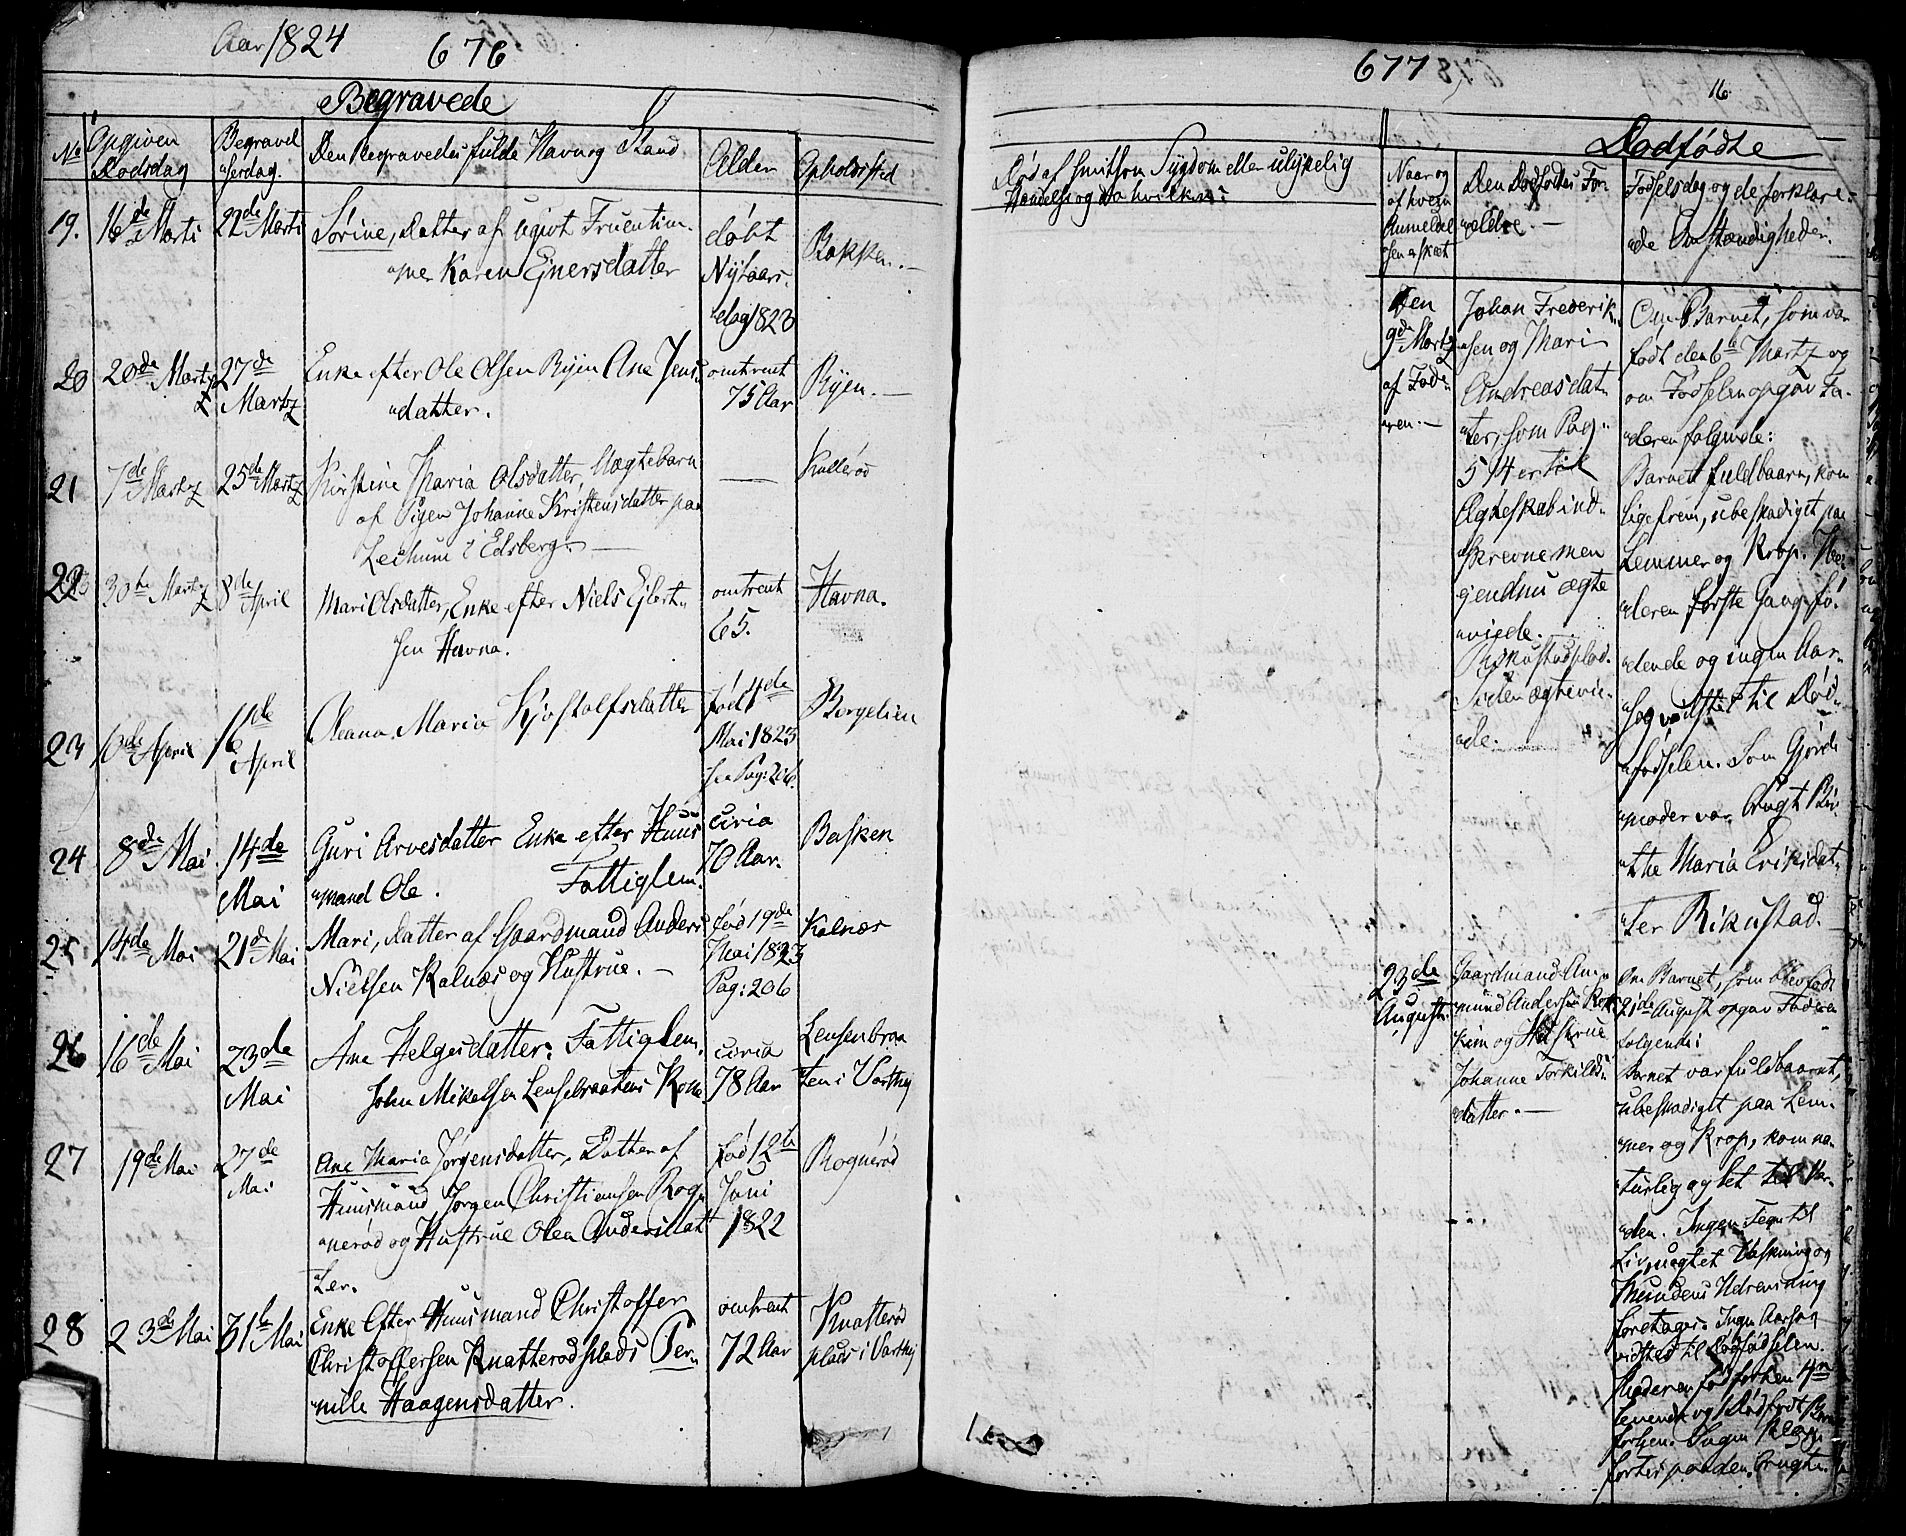 Aar 1824
676
Begravede
No
Opgiven
Dødsdag
Begravel
"sesdag.
Den Begravedes fulde Navn og Stand
Alder
Opholdssted
19.
16de Marti
22de Marti
Sørine, Datter af ugivt Fruentim-
"mer Karen Ejnersdatter
døbt
Nytaars-
"dag 1823
Bakken.
20
20de Martz
27de
Martz
Enke efter Ole Olsen Ryen Ane Jens-
"datter.
omtrent
75 Aar
Ryen.
21
7de Martz
25de Martz
Kirstine Maria Olsdatter, Uægtebarn
af Pigen Johanne Kristensdatter paa
i Edsberg.
—
Kullerød
22
30te Martz
8de April
Mari Olsdatter, Enke efter Niels Ejlert-
"sen Havna.
omtrent
65.
Havna.
23
10de April
16de
April
Oleana Maria Kjostolfsdatter
født 4de
Mai 1823
see Pag: 206.
Borgelien
24
8de Mai
14de
Mai
Guri Arvesdatter Enke efter Huus
"mand Ole. Fattiglem.
circa
70 Aar.
Basken
25
14de Mai
21de Mai
Mari, Datter af Gaardmand Anders
Nielsen Kalnæs og Hustrue.
fød 19de
Mai 1823
Pag: 206
Kalnæs
26
16de Mai
23de
Mai
Ane Helgesdatter. Fattiglem.
John Mikelsen Kone.
circa
78 Aar
Lensenbraa
"ten i Varteig
27
19de Mai
27de
Mai
Ane Maria Jørgensdatter, Datter af
Huusmand Jørgen Christiansen Rog-
"nerød og Hustrue Olea Andersdat-
"ter.
fød 12te
Juni
1822
Rognerød
28
23de Mai
31te Mai
Enke efter Huusmand Christoffer
Christoffersen Knatterødsplads Per-
"nille Haagensdatter.
omtrent
72 Aar
Knatterød
plads i Varteig
677
16
Død af smitsom Sygdom eller ulykkelig
Hændelse og da hvilken?
Dødfødte
Naar og
af hvem
Anmeldel
"sen er skeet
Den Dødfødtes For-
"ældre.
Fødselsdag og de forklare-
"de Omstændigheder.
Den
9de Martz
af Fade-
"ren.
Johan Frederik-
"sen og Mari
Andreasdat-
"ter, som Pag-
514 er til
Ægteskab ind-
"skrevne men
ejendnu ægte
"viede.
Siden ægtevie-
"de.
Om Barnet, som var
født den 6te Martz og
om Fødselen opgav Fa-
"deren følgende:
Barnet fuldbaaren, kom
ligefrem, ubeskadiget paa
Lemmer og Krop. Mo-
"deren første Gang fø-
"dende og ingen Aar-
"sag vidstes til Død-
"fødselen. Som Gjorde-
"moder var brugt Bir-
"the Maria Eriksdat-
"ter Rikustad.
23de
August.
Gaardmand Am-
"mund Andersen
og Hustrue
Johanne Torkilds-
"datter.
Om Barnet, som blev født
21de August opgav Faderen
følgende:
Barnet var fuldbaaret,
ubeskadiget paa Lem-
"mer og Krop, kom na-
"turligagtet til Ver-
"den. Ingen Tegn til
Liv, uagtet Vaskning og
Mundens Udrensning
foretages. Ingen Aarsag
vidstes til Dødfødselen.
Moderen fød forhen 4
levende og 1 Dødfødt Barn
forhen. Ingen Klage
føres paa den brugte